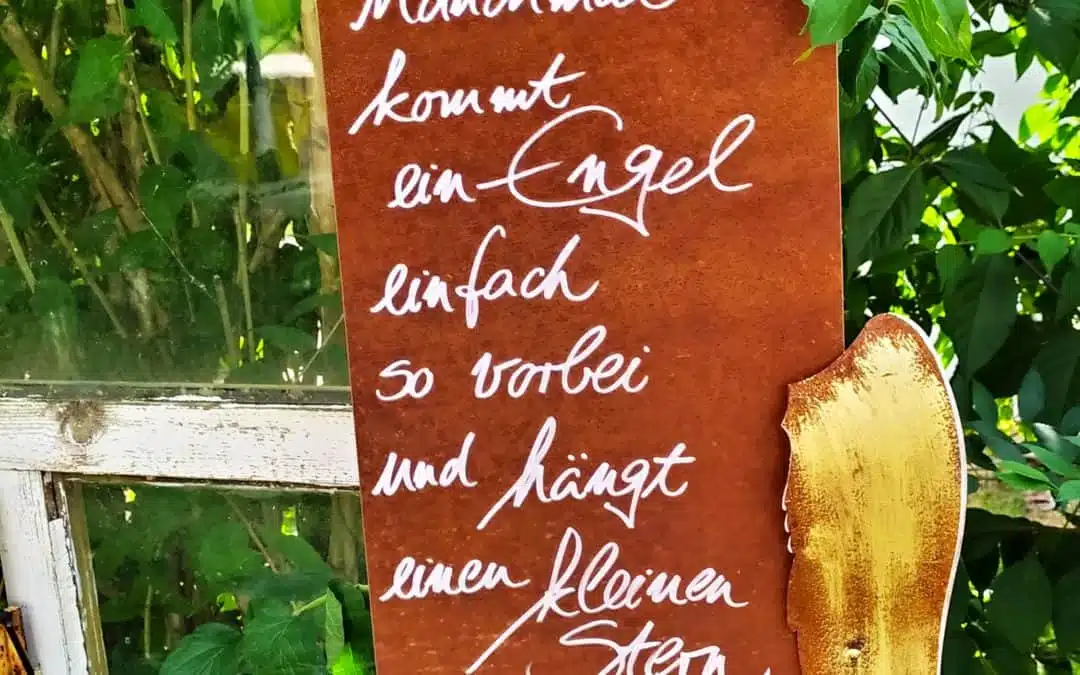 Manchmal
kommt
ein Engel
einfach
so vorbei
und hängt
einen kleinen
Stern